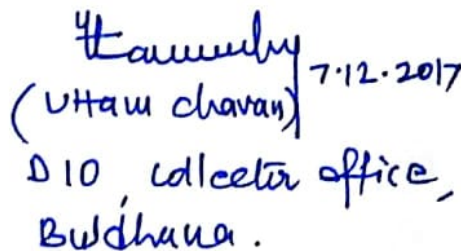 7.12.2017
(Uttam Chavan)
DIO, Collector office,
Buldhana.